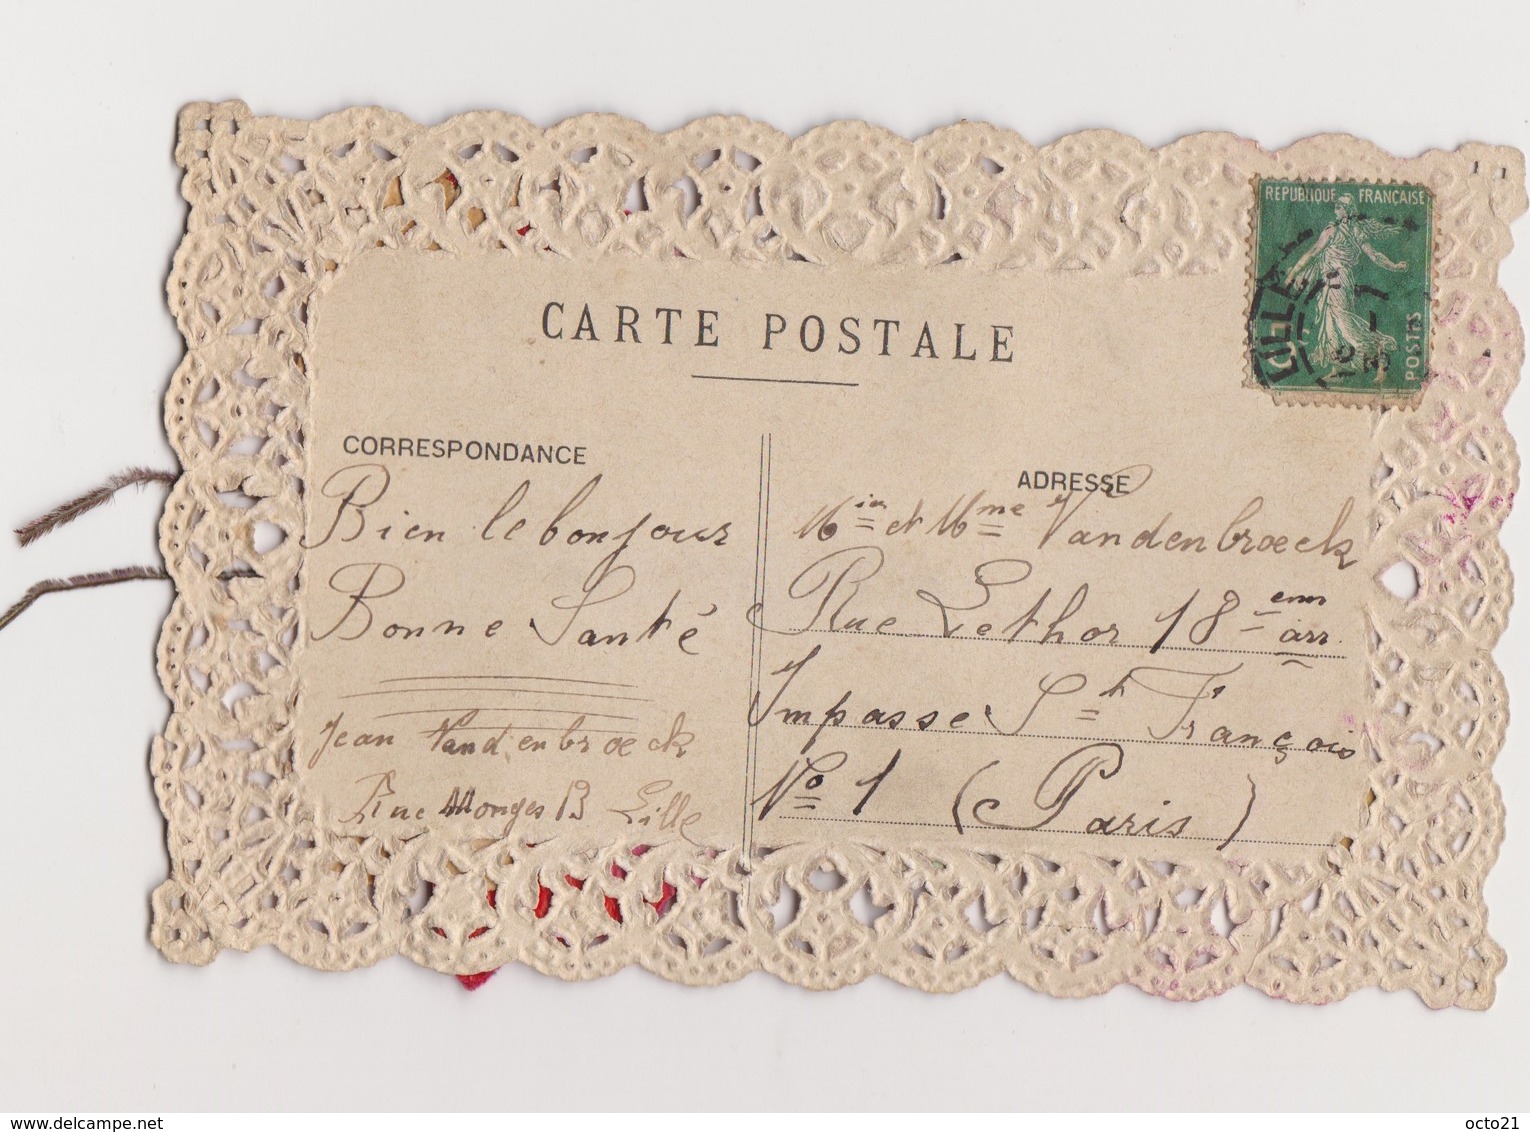 CARTE POSTALE
RÉPUBLIQUE FRANÇAISE
POSTES
LILLE
CORRESPONDANCE
Bien le bonjour
Bonne Santé
Jean Vandenbroeck
Rue Monges 13 Lille
ADRESSE
Mr et Mme Vandenbroeck
Rue Lethor 18 em arr.
Impasse St François
No 1 (Paris)
www.delcampe.net
octo21